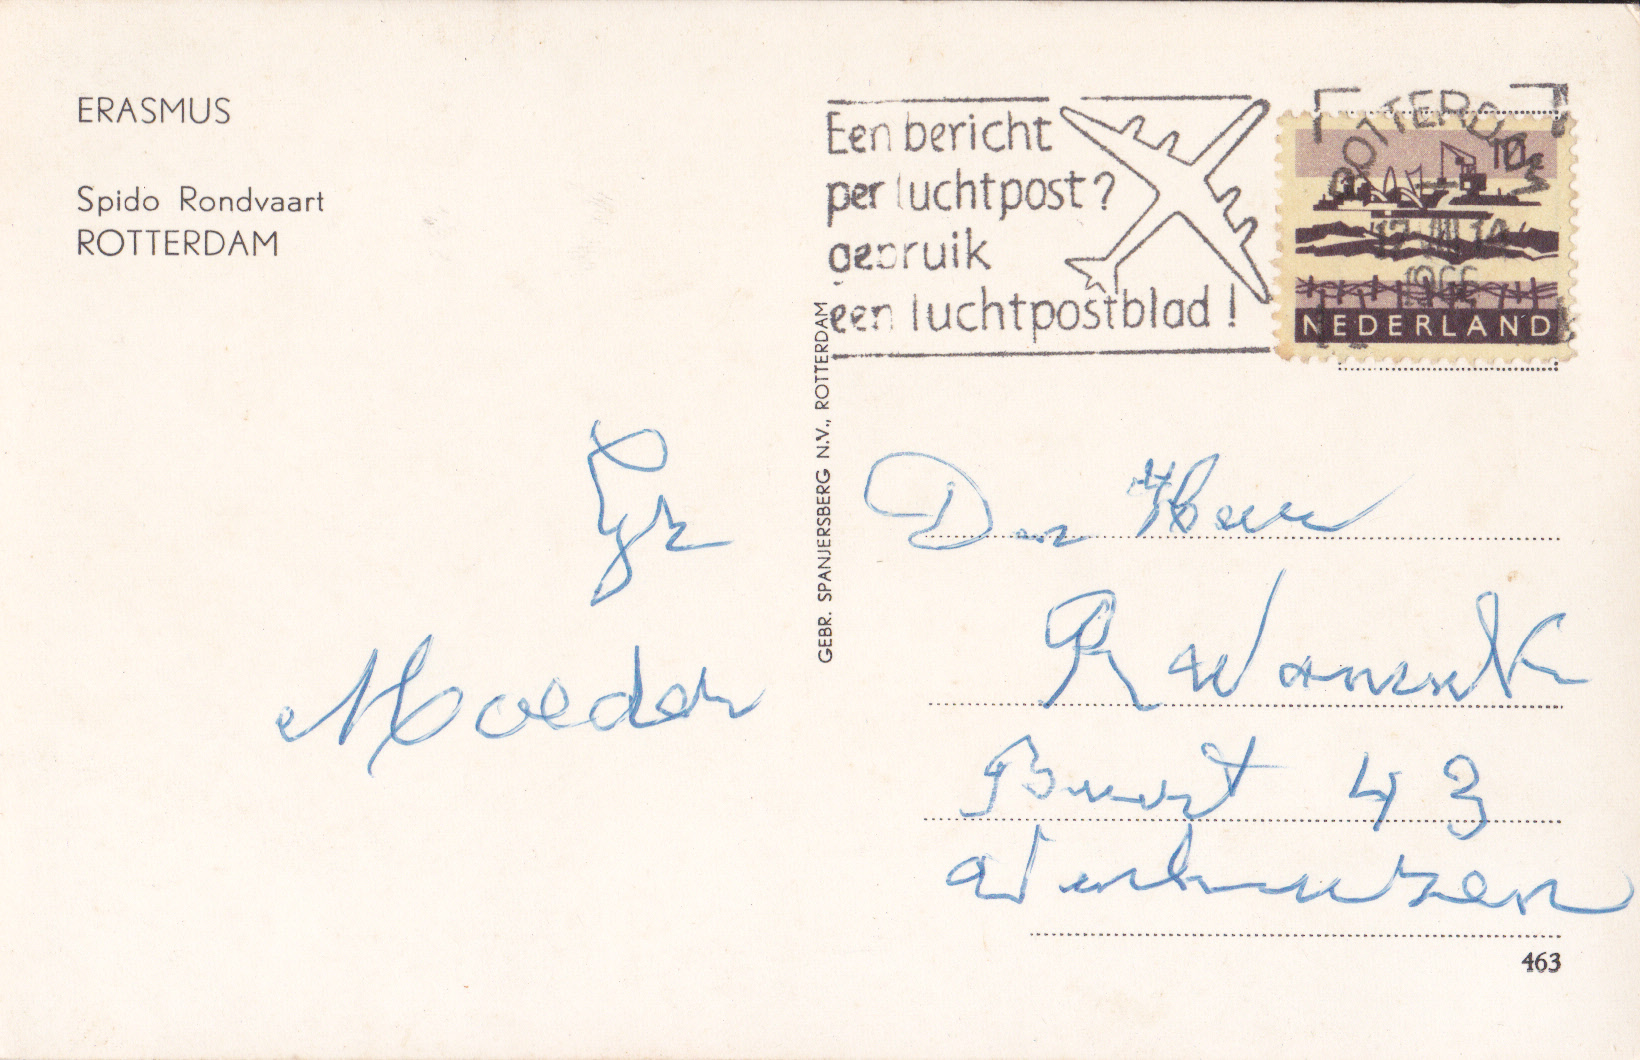 ERASMUS
Spido Rondvaart
ROTTERDAM
Een bericht
per luchtpost?
gebruik
een luchtpostblad!
ROTTERDAM
1966
10c
NEDERLAND
GEBR. SPANJERSBERG N.V., ROTTERDAM
Moeder
Den Heer
R
Buurt 43
463